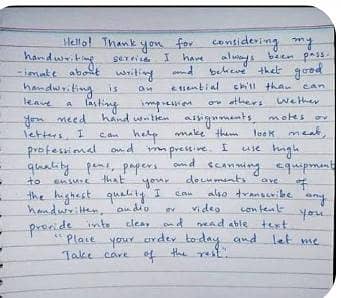 Hello! Thank you for considering my
handwriting services I have always been pass-
-ionate about writing and believe that good
handwriting is an essential skill than can
leave a lasting impression on others Wether
you need hand written assignments, motes or
letters, I can help make them look neat,
professional and impressive. I use high
quality pens, papers and scanning equipment
to ensure that your documents are of
the highest quality I can also transcribe any
handwritten, audio or video content you
provide into clear and readable text
"Place your order today and let me
Take care of the rest".